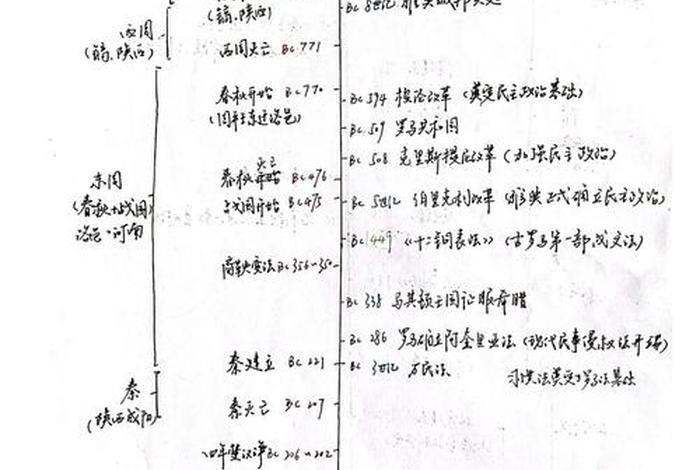 (镐、陕西)
西周
(镐、陕西)
西周灭亡 BC 771
春秋开始 BC 770
(周平王东迁洛邑)
BC 594 梭伦改革 (奠定民主政治基础)
BC 509 罗马共和国
BC 508 克里斯提尼改革 (加强民主政治)
灭亡
春秋开始 BC 476
战国开始 BC 475
东周
(春秋+战国)
洛邑·河南
BC 5世纪 伯里克利改革 (雅典正式确立民主政治)
BC 449 《十二铜表法》 (古罗马第一部成文法)
商鞅变法 BC 356~350
BC 338 马其顿王国征服希腊
BC 286 罗马确立阿奎里亚法 (现代民事侵权法开端)
秦建立 BC 221
BC 3世纪 万民法
秦
(陕西咸阳)
秦灭亡 BC 207
四年楚汉争 BC 206~202